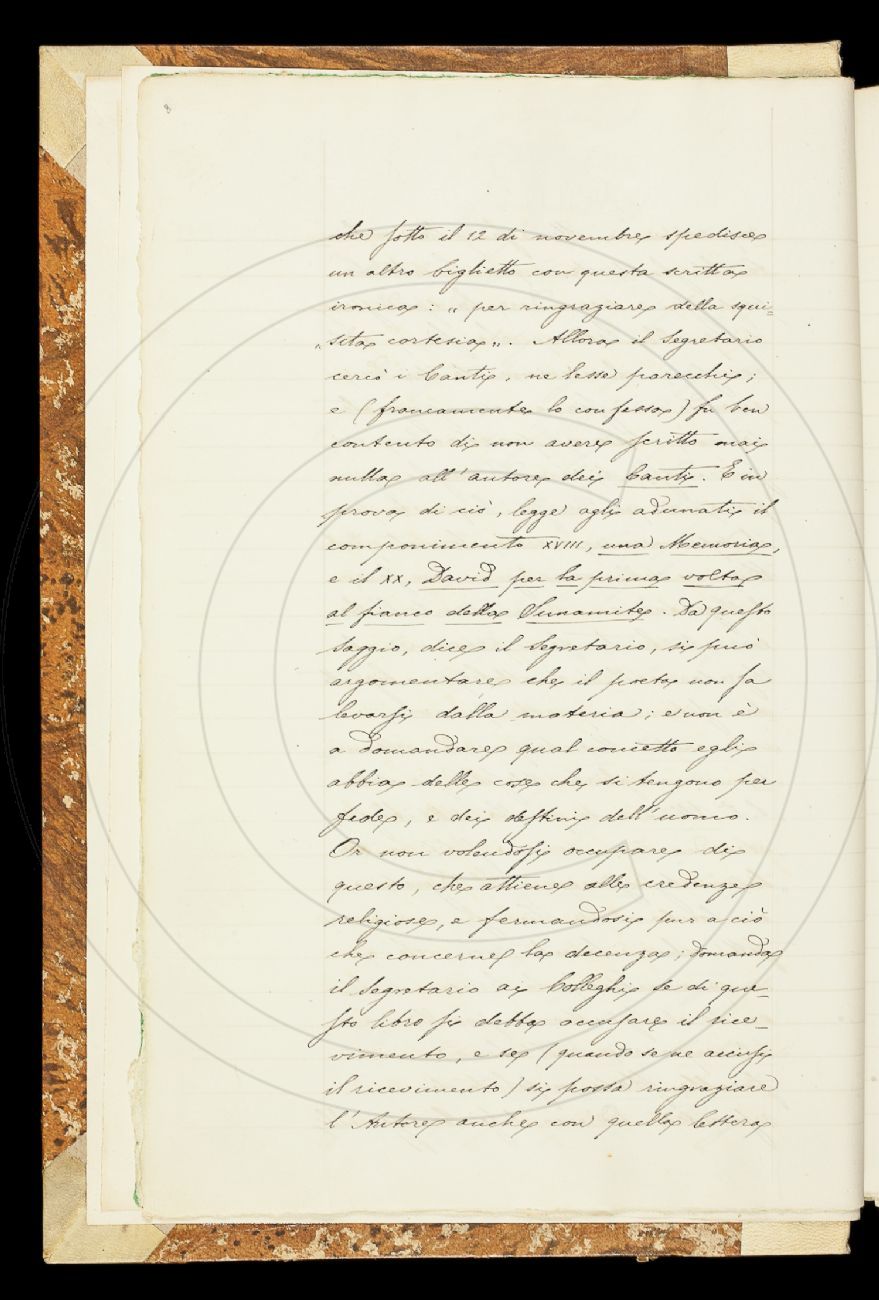 che sotto il 12 di novembre spedisce
un altro biglietto con questa scritta
ironica: „ per ringraziare della squi=
„sita cortesia„. Allora il Segretario
cercò i Canti, ne lesse parecchi;
e (francamente lo confessa) fu ben
contento di non avere scritto mai
nulla all'autore dei Canti. E in
prova di ciò, legge agli adunati il
componimento XVIII, una Memoria,
e il XX, David per la prima volta
al fianco della Sunamite. Da questo
saggio, dice il Segretario, si può
argomentare che il poeta non sa
levarsi dalla materia; e non è
a domandare qual concetto egli
abbia delle cose che si tengono per
fede, e dei destini dell'uomo.
Or non volendosi occupare di
questo, che attiene alle credenze
religiose, e fermandosi pur a ciò
che concerne la decenza; domanda
il Segretario ai Colleghi se di que-
sto libro si debba accusare il rice-
vimento, e se (quando se ne accusi
il ricevimento) si possa ringraziare
l'Autore anche con quella lettera